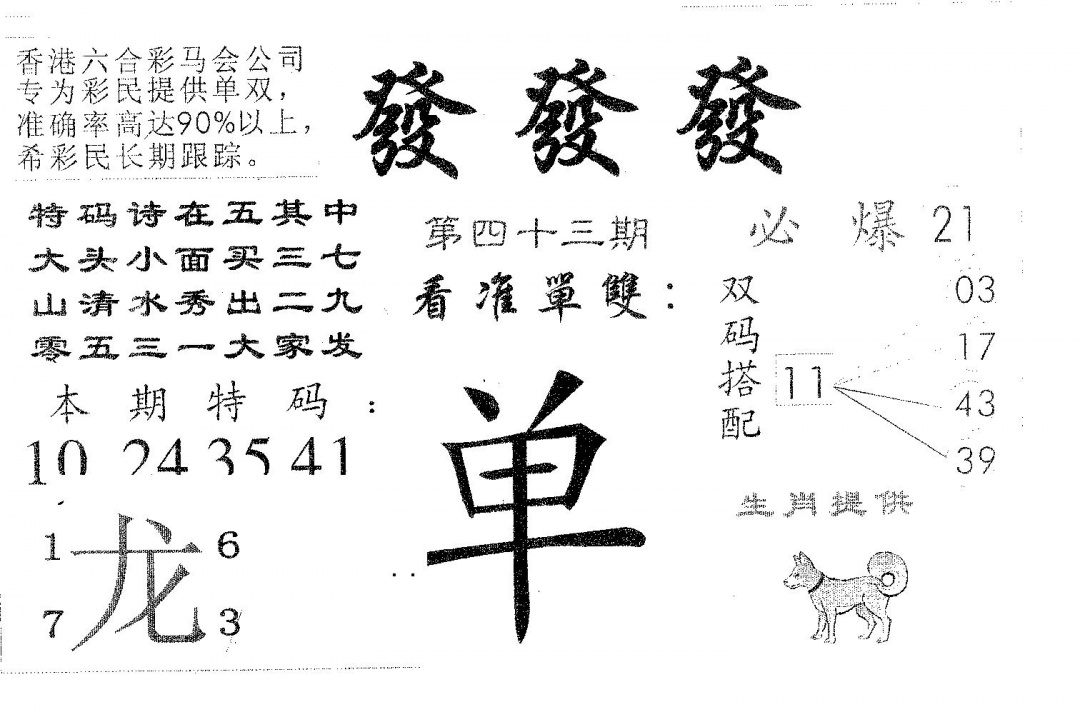 香港六合彩马会公司
专为彩民提供单双，
准确率高达90%以上，
希彩民长期跟踪。
發 發 發
特码诗在五其中
大头小面买三七
山清水秀出二九
零五三一大家发
第四十三期
看准單雙：
单
必 爆 21
双码搭配
11
03
17
43
39
本期特码：
10 24 35 41
龙
1 6
7 3
生肖提供